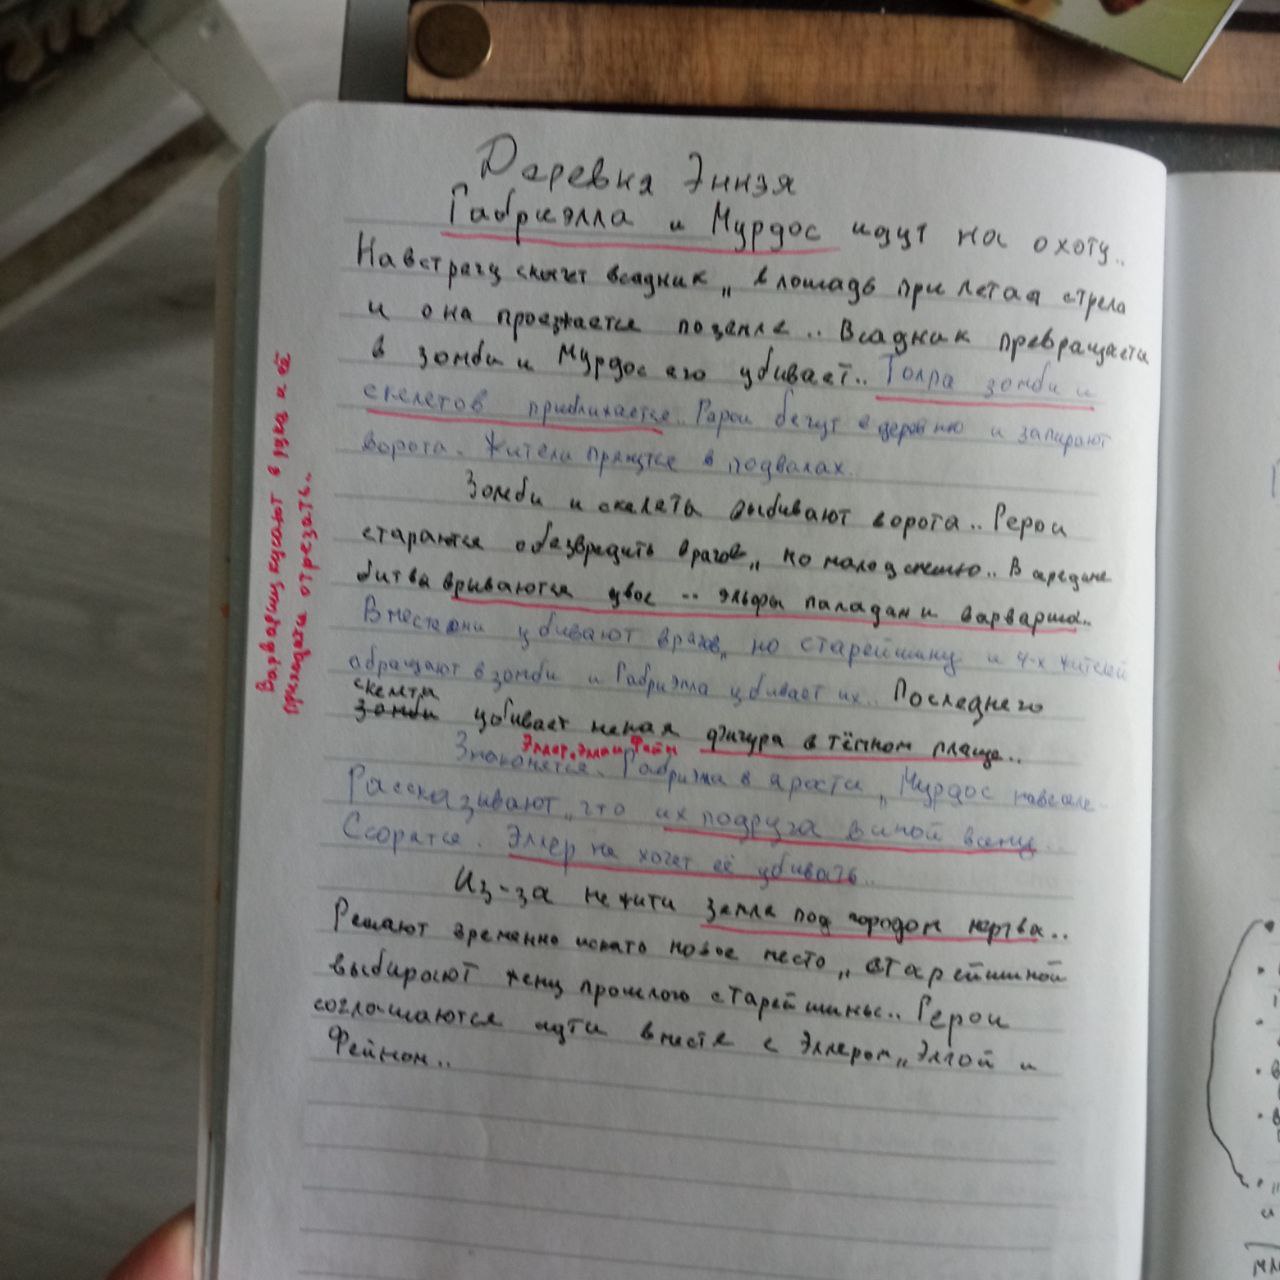 Деревня Эннэя
Габриэлла и Мурдос идут на охоту..
Навстречу скачет всадник,, в лошадь прилетая стрела
и она проезжается по земле.. Всадник превращается
в зомби и Мурдос его убивает.. Толпа зомби и
скелетов приближается.. Герои бегут в деревню и запирают
ворота. Жители прячутся в подвалах.
Зомби и скелеты выбивают ворота.. Герои
стараются обезвредить врагов,, но малоуспешно.. В середине
битвы врываются двое .. эльфы паладин и варварша..
Вместе они убивают врагов,, но старейшину и 4-х жителей
обращают в зомби и Габриэлла убивает их.. Последнего
скелета
зомби убивает некая фигура в тёмном плаще..
Эллер, Элли, Фейн
Знакомятся. Габриэлла в ярости,, Мурдос навеселе.
Рассказывают,, что их подруга виной всему..
Ссорятся. Эллер не хочет её убивать..
Из-за нежити земля под городом мертва..
Решают временно искать новое место,, старейшиной
выбирают жену прошлого старейшины.. Герои
соглашаются идти вместе с Эллером,, Эллой и
Фейном..
Варваршу кусают в руку и её
приходится отрезать..